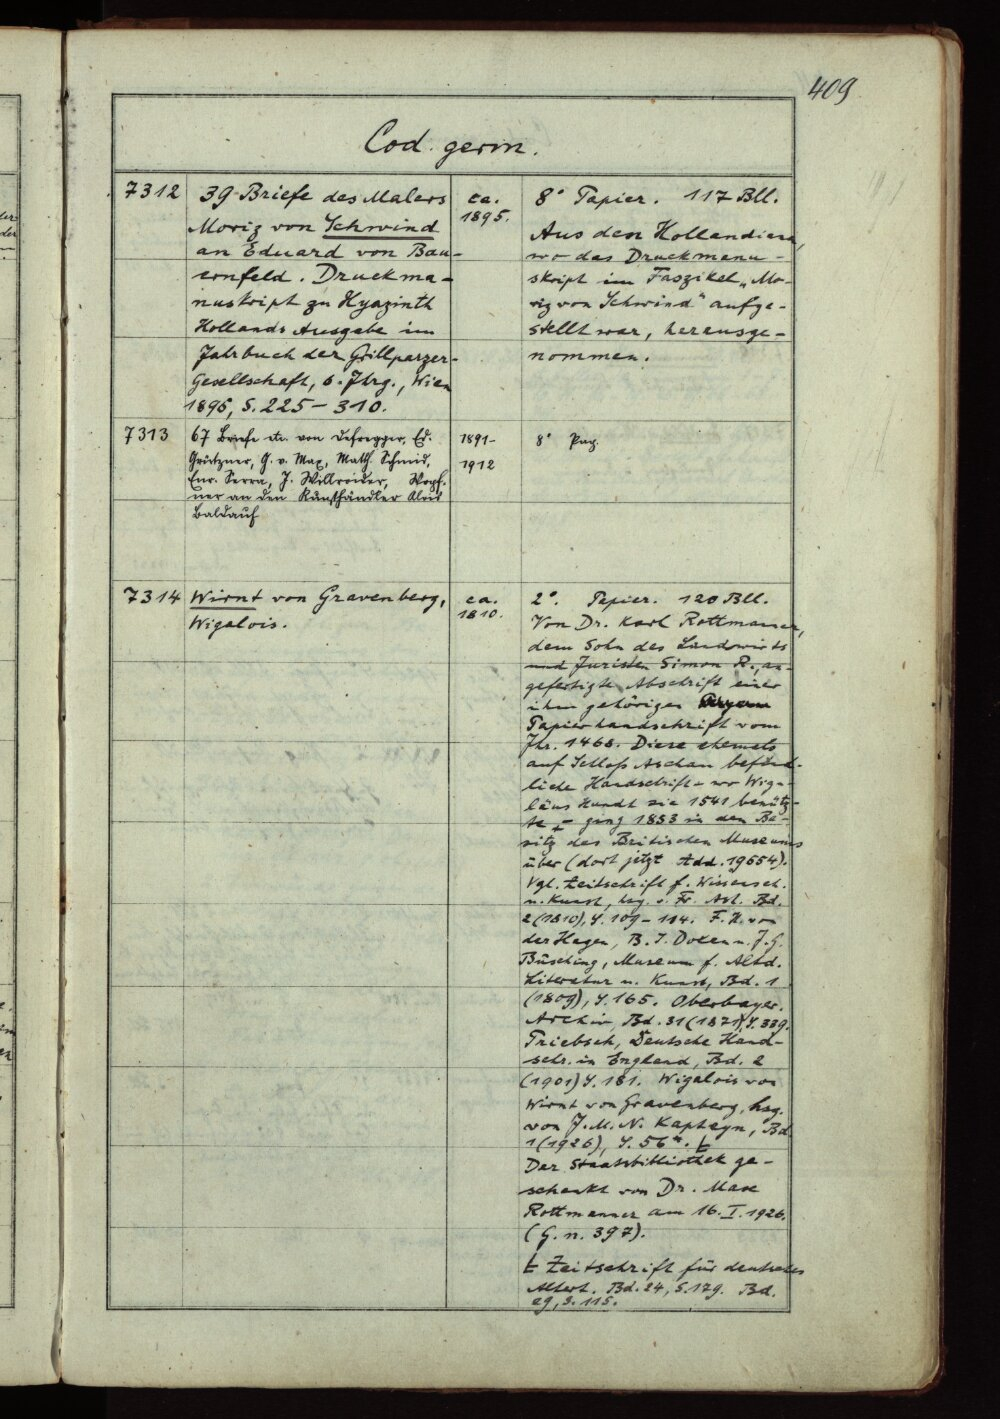 409
Cod. germ.
7312
39 Briefe des Malers
Moriz von Schwind
an Eduard von Bau-
ernfeld. Druckma-
nuskript zu Hyazinth
Hollands Ausgabe im
Jahrbuch der Grillparzer-
Gesellschaft, 6. Jhrg., Wien
1896, S. 225-310.
ca.
1895.
8° Papier. 117 Bll.
Aus den Hollandiana,
wo das Druckmanu-
skript im Faszikel „Mo-
riz von Schwind" aufge-
stellt war, herausge-
nommen.
7313
67 Briefe etc. von Defregger, Ed.
Grützner, G. v. Max, Math. Schmid,
Enr. Serra, J. Willroider, Wopf-
ner an den Kunsthändler Alois
Baldauf
1891-
1912
8° Pap.
7314
Wirnt von Gravenberg,
Wigalois.
ca.
1810.
2°. Papier. 120 Bll.
Von Dr. Karl Rottmanner,
dem Sohn des Landwirts
und Juristen Simon R., an-
gefertigte Abschrift einer
ihm gehörigen
Papierhandschrift vom
Jhr. 1468. Diese ehemals
auf Schloß Aschau befind-
liche Handschrift - wo Wigu-
läus Hundt sie 1541 benütz-
te - ging 1853 in den Be-
sitz des Britischen Museums
über (dort jetzt Add. 19554).
Vgl. Zeitschrift f. Wissensch.
u. Kunst, hrg. v. Fr. Ast. Bd.
2 (1810), S. 109-114. F. H. von
der Hagen, B. J. Docen u. J. G.
Büsching, Museum f. Altd.
Literatur u. Kunst, Bd. 1
(1809), S. 165. Oberbayer.
Archiv, Bd. 31 (1871), S. 339.
Priebsch, Deutsche Hand-
schr. in England, Bd. 2
(1901) S. 181. Wigalois von
Wirnt von Gravenberg, hsg.
von J. M. N. Kapteyn, Bd.
1 (1926), S. 56*.
Der Staatsbibliothek ge-
schenkt von Dr. Max
Rottmanner am 16. I. 1926.
(G. n. 397).
Zeitschrift für deutsches
Altert. Bd. 24, S. 179. Bd.
29, S. 115.